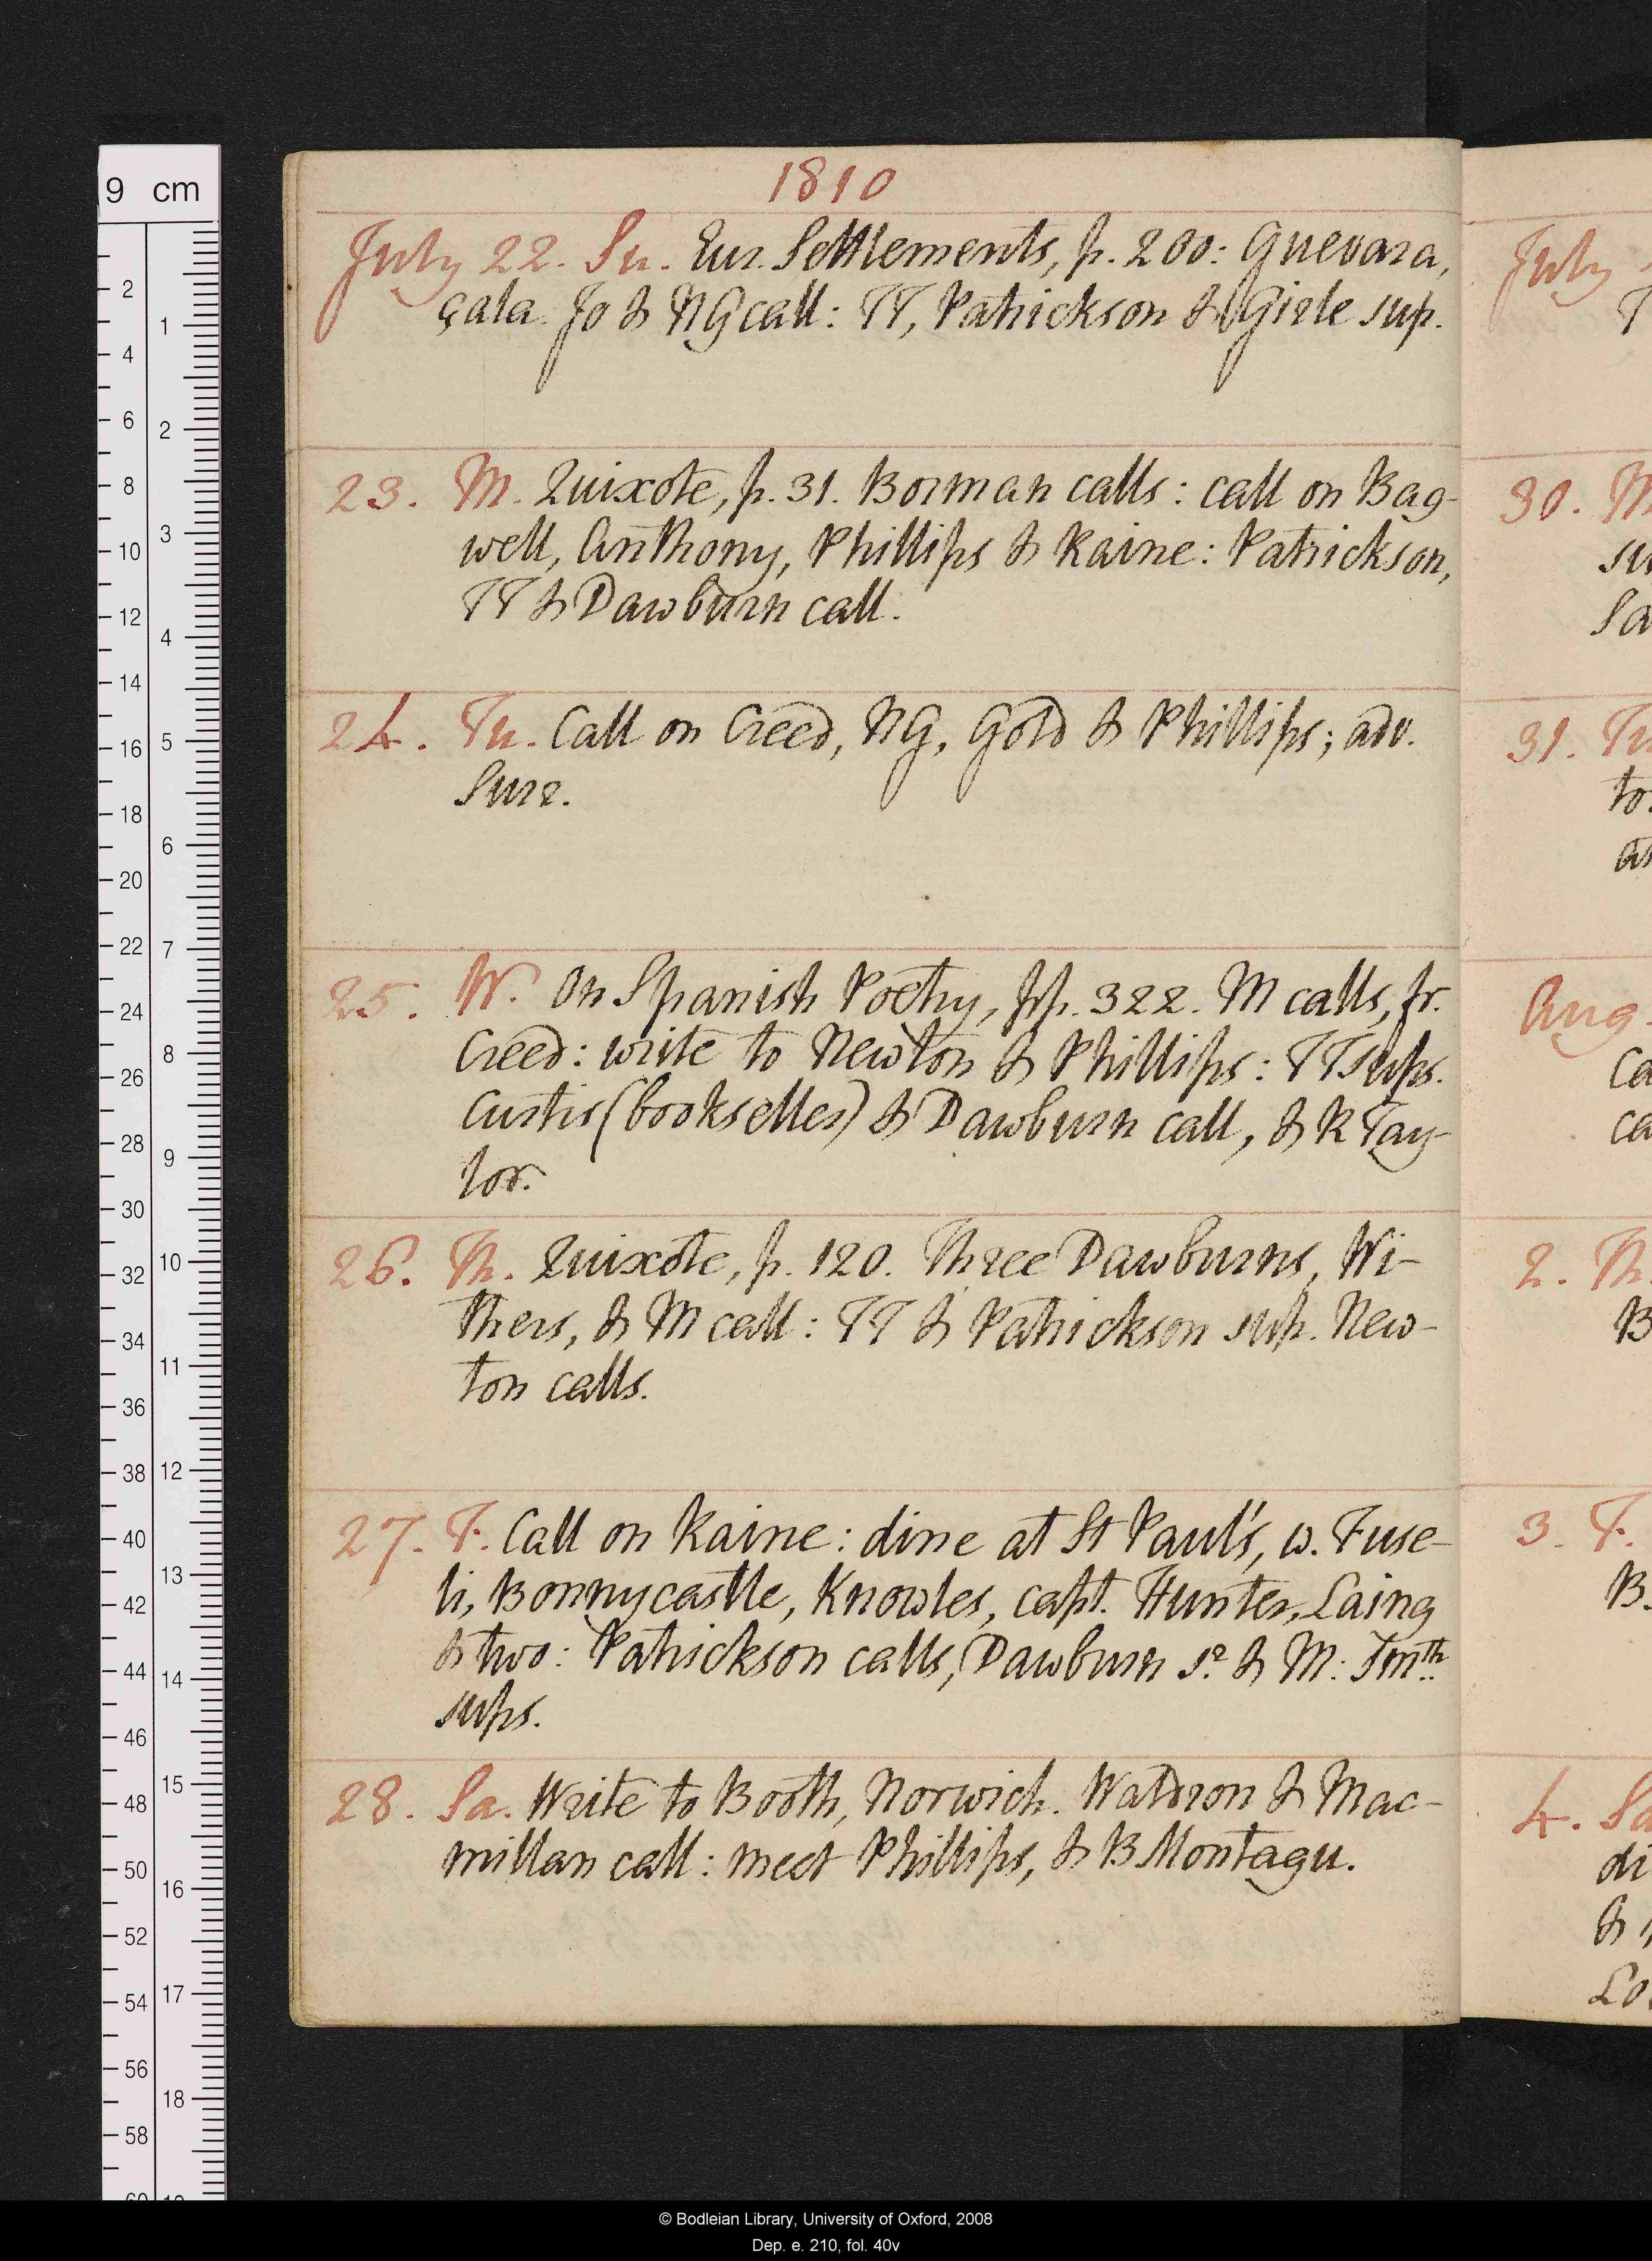 1810
July 22. Su. Eur. Settlements, p. 200: Guevara,
çala. Jo & NG call: TT, Patrickson & Girle sup.
23. M. Quixote, p. 31. Borman calls: call on Bag-
well, Anthony, Phillips & Raine: Patrickson,
TT & Dawburn call.
24. Tu. Call on Creed, NG, Gold & Phillips; adv.
Surr.
25. W. On Spanish Poetry, pp. 322. M calls, fr.
Creed: write to Newton & Phillips: TT sups.
Curtis (bookseller) & Dawburn call, & R Tay-
lor.
26. Th. Quixote, p. 120. Three Dawburns, Wi-
thers, & M call: TT & Patrickson sup. New-
ton calls.
27. F. Call on Raine: dine at St Paul's, w. Fuse-
li, Bonnycastle, Knowles, capt. Hunter, Laing
& two: Patrickson calls, Dawburn sr & M: Smth
sups.
28. Sa. Write to Booth, Norwich. Waldron & Mac-
millan call: meet Phillips, & B Montagu.
July
30. M
su
Sa
31. Tu
to
Aug
ca
ca
2. Th
B
3. F.
B.
4. Sa
di
&
Lo
9 cm
2
4
6
8
10
12
14
16
18
20
22
24
26
28
30
32
34
36
38
40
42
44
46
48
50
52
54
56
58
60
1
2
3
4
5
6
7
8
9
10
11
12
13
14
15
16
17
18
© Bodleian Library, University of Oxford, 2008
Dep. e. 210, fol. 40v